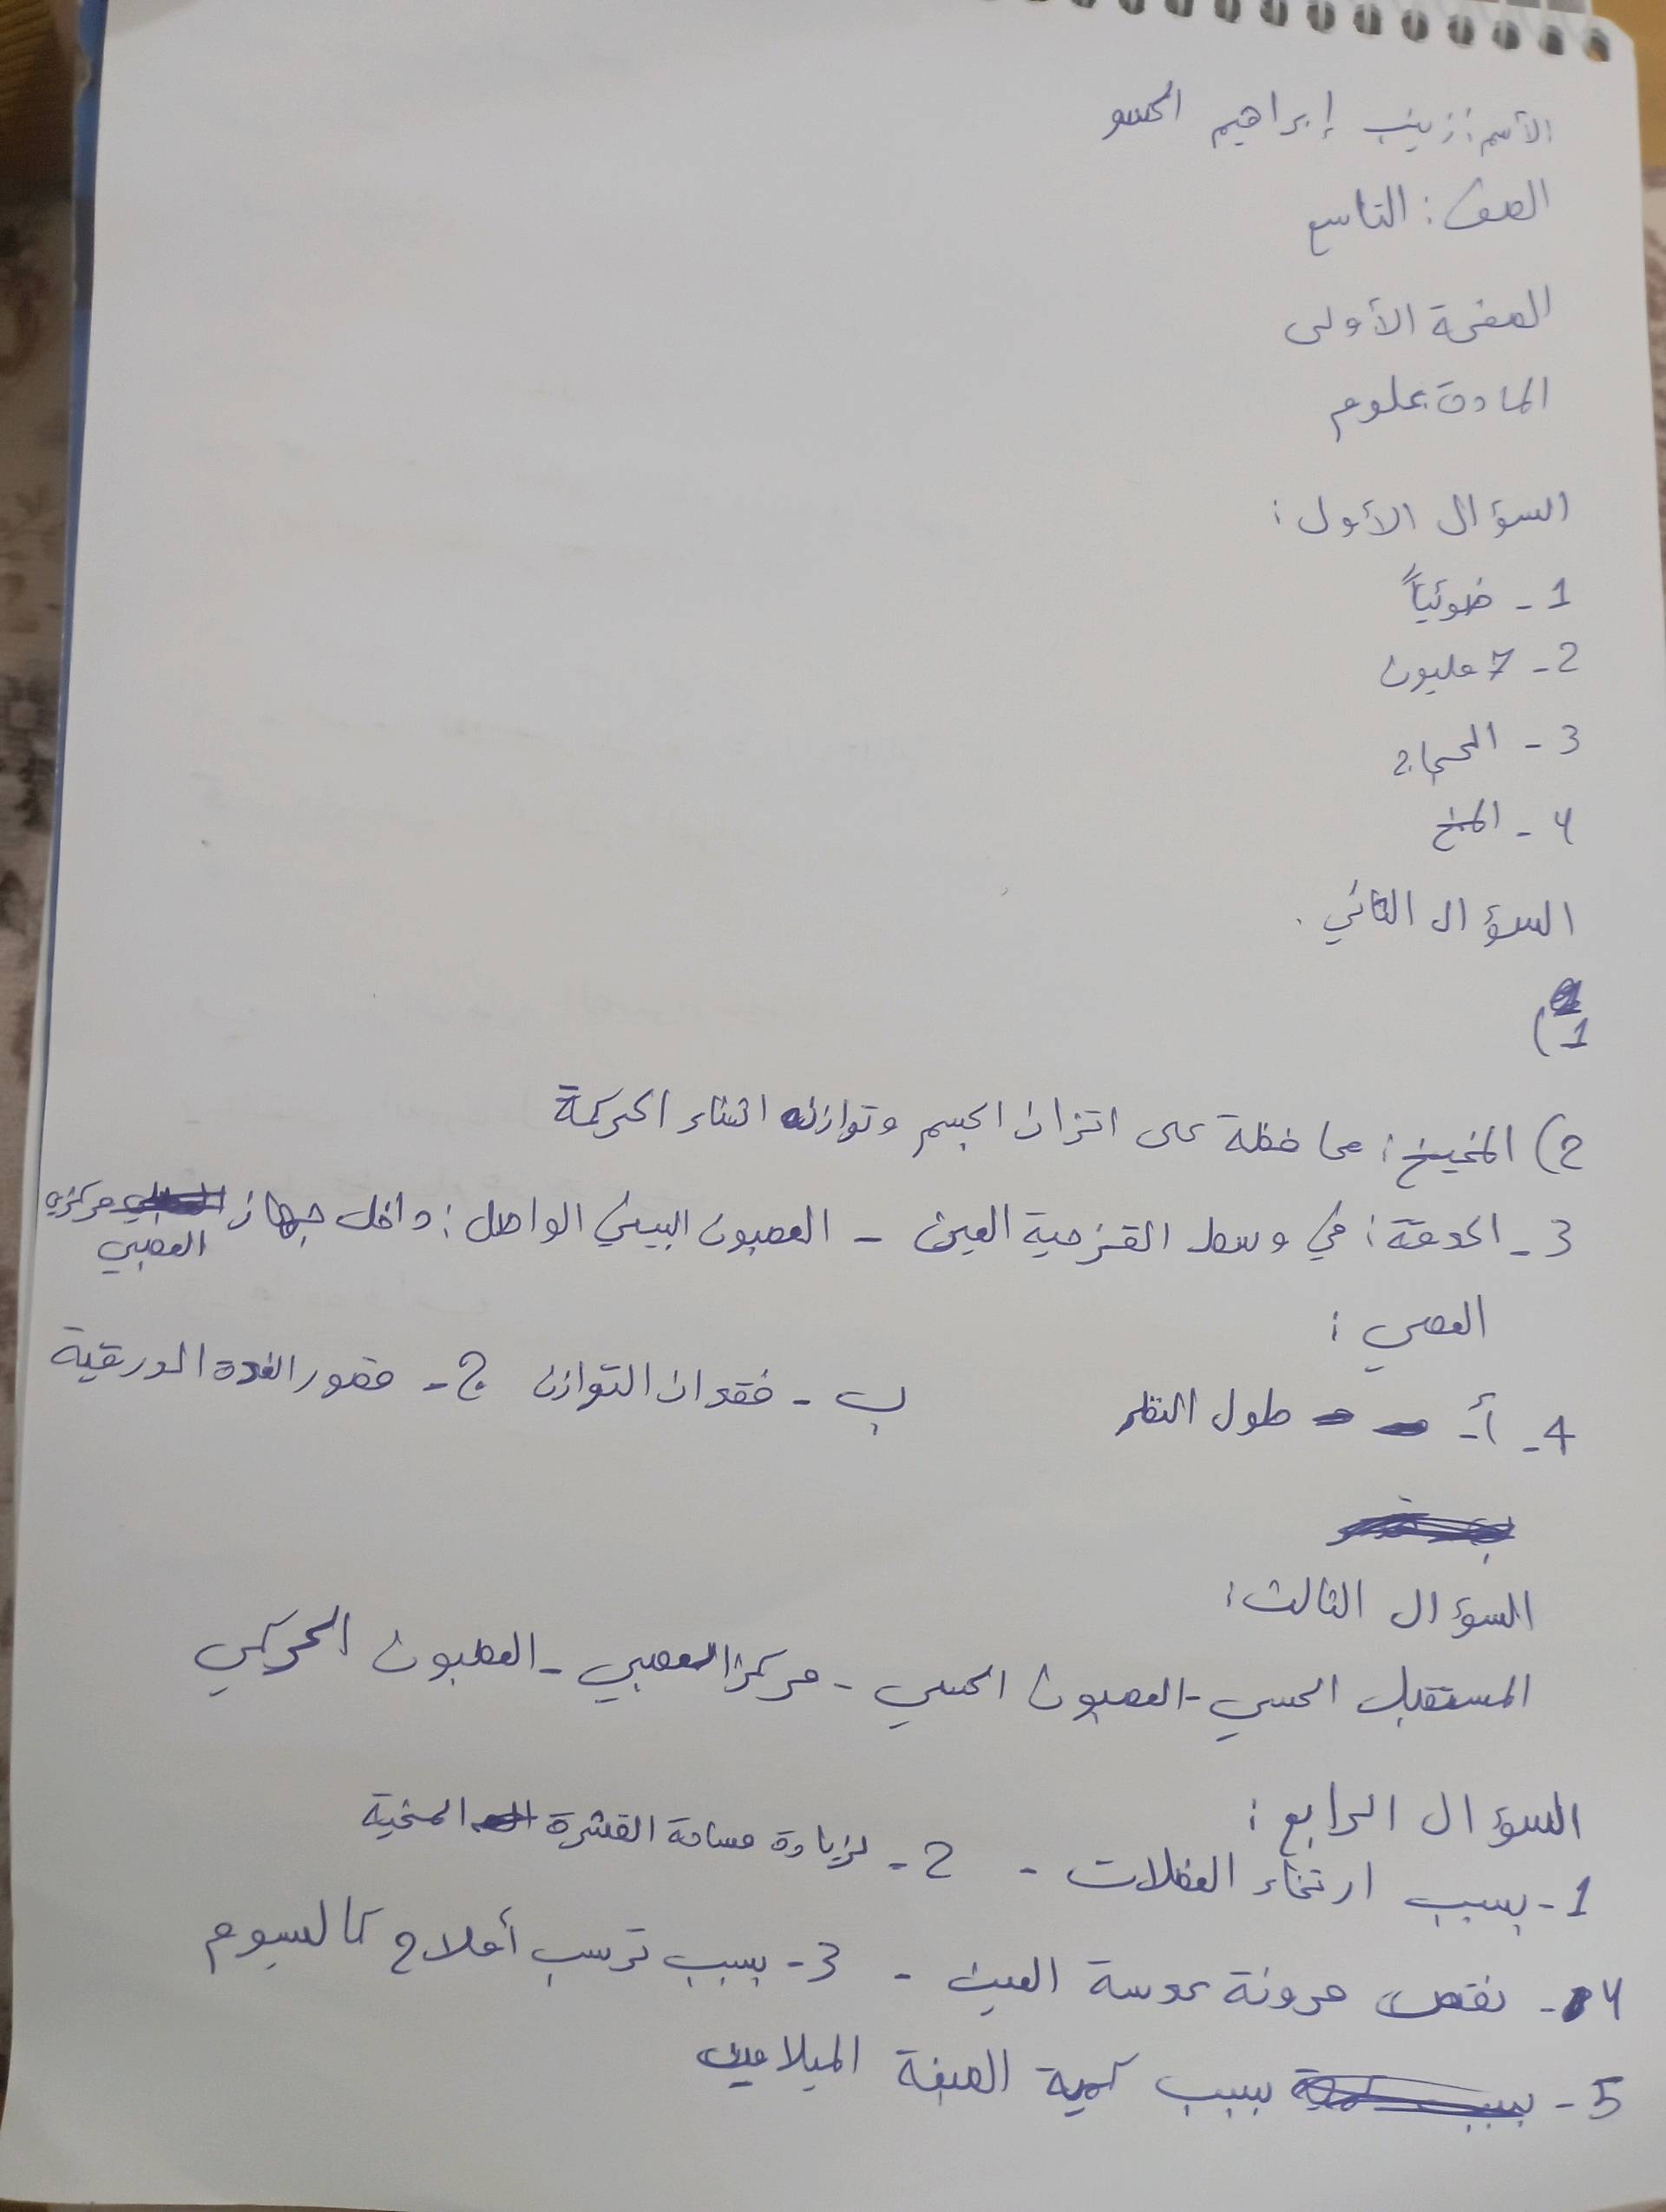 الأسم: زينب إبراهيم الحسو
الصف: التاسع
الصفحة الأولى
المادة: علوم
السؤال الأول:
1 - ضوئياً
2 - 7 مليون
3 - الحجاج
4 - المخ
السؤال الثاني.
1)
2) المخيخ: محافظة على اتزان الجسم وتوازنه اثناء الحركة
3 - الحدقة: في وسط القزحية العين - العصبون البيني الواصل: داخل جهاز مركزي
العصبي
العصبي:
4 - أ - طول النظر ب - فقدان التوازن ج - قصور الغدة الدرقية
السؤال الثالث:
المستقبل الحسي - العصبون الحسي - مركز العصبي - العصبون الحركي
السؤال الرابع:
1 - بسبب ارتخاء العضلات - 2 - لزيادة مساحة القشرة المخية
4 - نقص مرونة عدسة العين - 3 - بسبب ترسب أملاح كالسيوم
5 - بسبب كمية الصبغة الميلامين